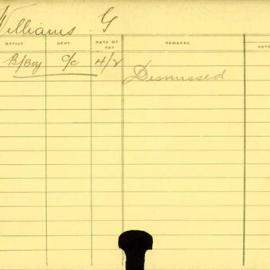 Williams G
OFFICE DEPT. RATE OF PAY REMARKS
B/Boy O/C 4/2 Dismissed